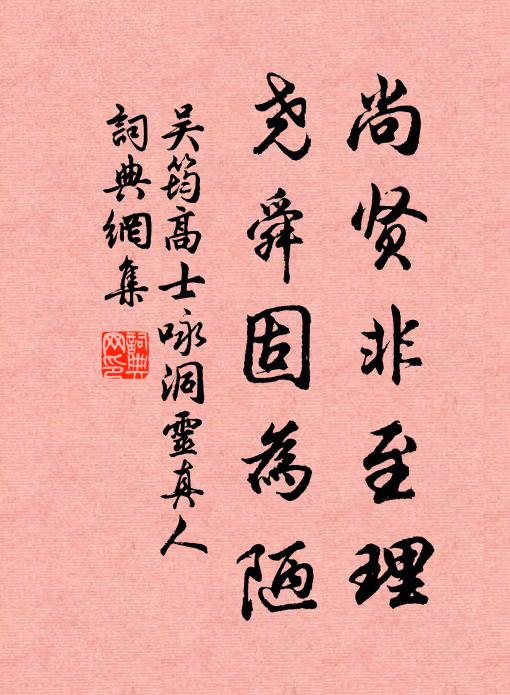 尚贤非至理
尧舜固為陋
吴筠高士咏洞靈真人
詞典網集
詞典网印